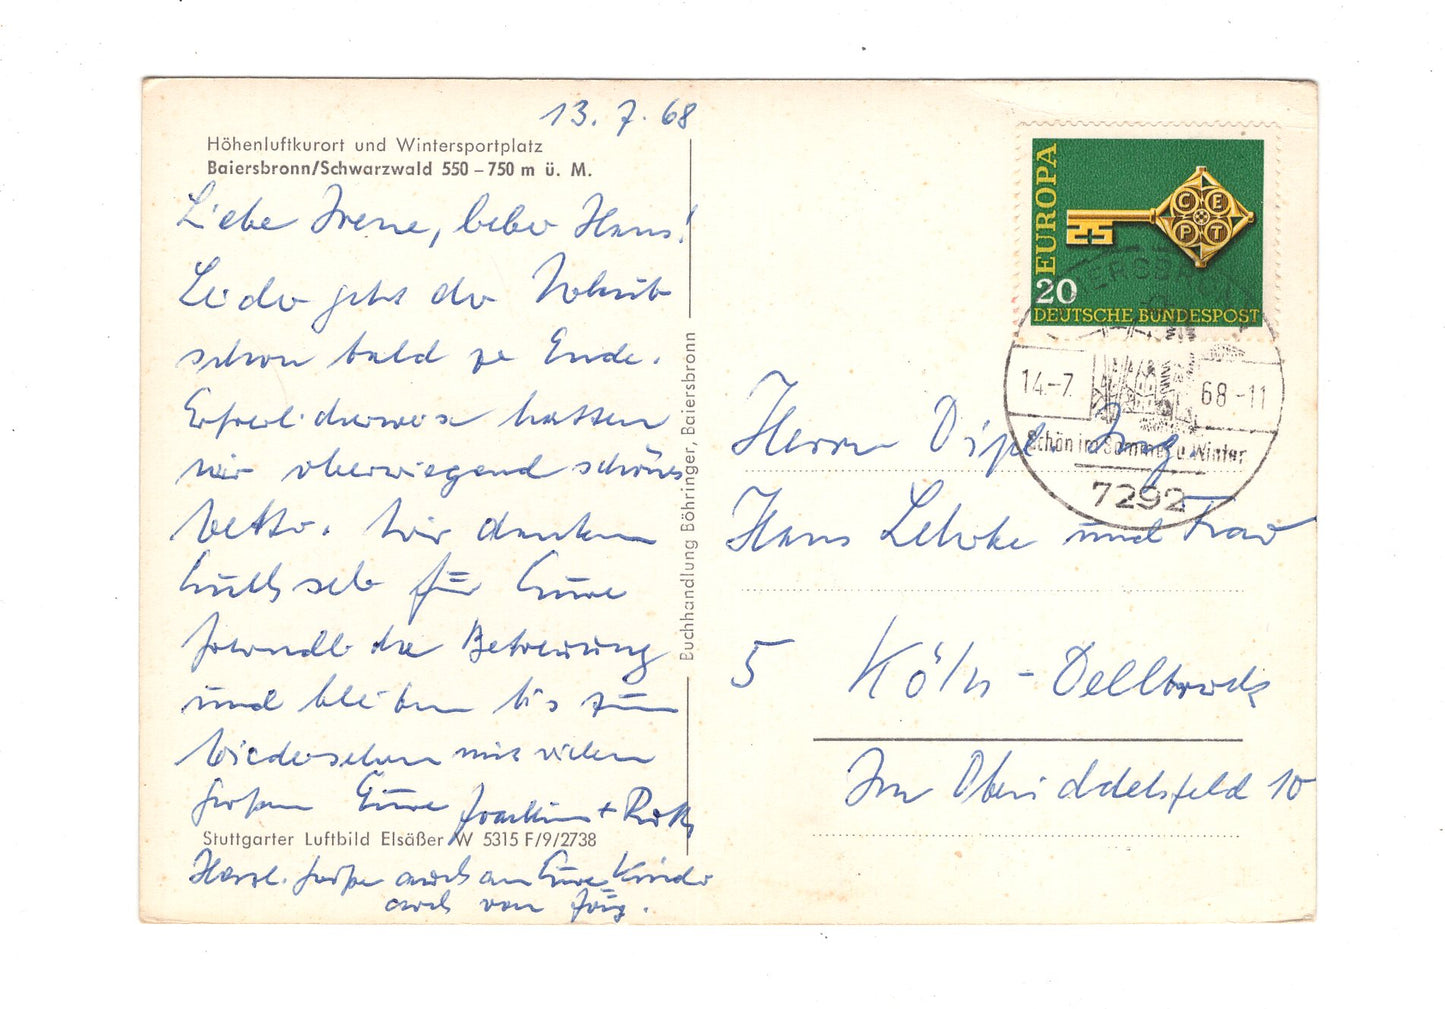 13. 7. 68
Höhenluftkurort und Wintersportplatz
Baiersbronn/Schwarzwald 550 – 750 m ü. M.
Liebe Irene, lieber Hans!
Leider geht der Urlaub
schon bald zu Ende.
Erfreulicherweise hatten
wir überwiegend schönes
Wetter. Wir danken
Euch sehr für Eure
freundliche Betreuung
und bleiben bis zum
Wiedersehen mit vielen
Grüßen Eure Joachim + Ruth
Stuttgarter Luftbild Elsäßer W 5315 F/9/2738
Herzl. Grüße auch an Eure Kinder
auch von Jörg.
Buchhandlung Böhringer, Baiersbronn
EUROPA
C E P T
20
DEUTSCHE BUNDESPOST
14.-7. 68 -11
Schön im Sommer u. Winter
7292
Herrn Dipl. Ing.
Hans und Frau
5 Köln - Dellbrück
Im Oberiddelsfeld 10